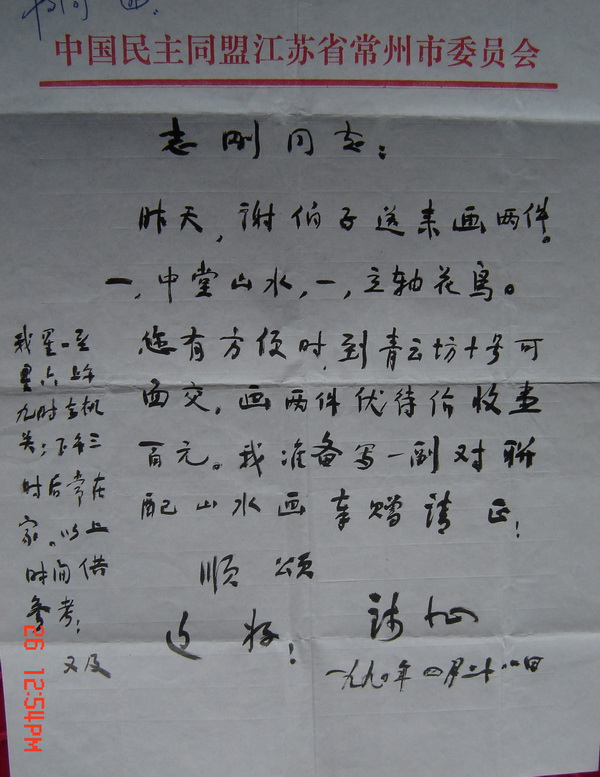 中国民主同盟江苏省常州市委员会
志刚同志：
昨天，谢伯子送来画两件。
一，中堂山水，一，立轴花鸟。
您有方便时，到青云坊十号可
面交。画两件优待价收壹
百元。我准备写一副对联
配山水画奉赠请正！
顺颂
近好！
一九九〇年四月二十八日
我星一至
星六上午
九时去机
关；下午三
时后常在
家。以上
时间供
参考；
又及
26 12:54PM